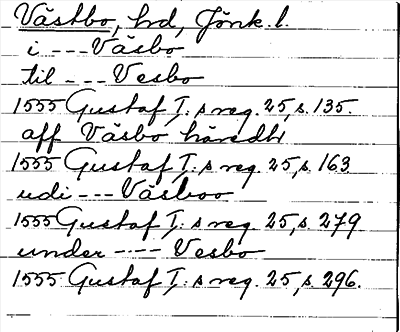 Västbo, hd, Jönk. l.
i --- Väsbo
til --- Vesbo
1555 Gustaf I:s reg. 25, s. 135.
aff Väsbo häredh
1555 Gustaf I:s reg. 25, s. 163
udi --- Väsboo
1555 Gustaf I:s reg. 25, s. 279
under --- Vesbo
1555 Gustaf I:s reg. 25, s. 296.